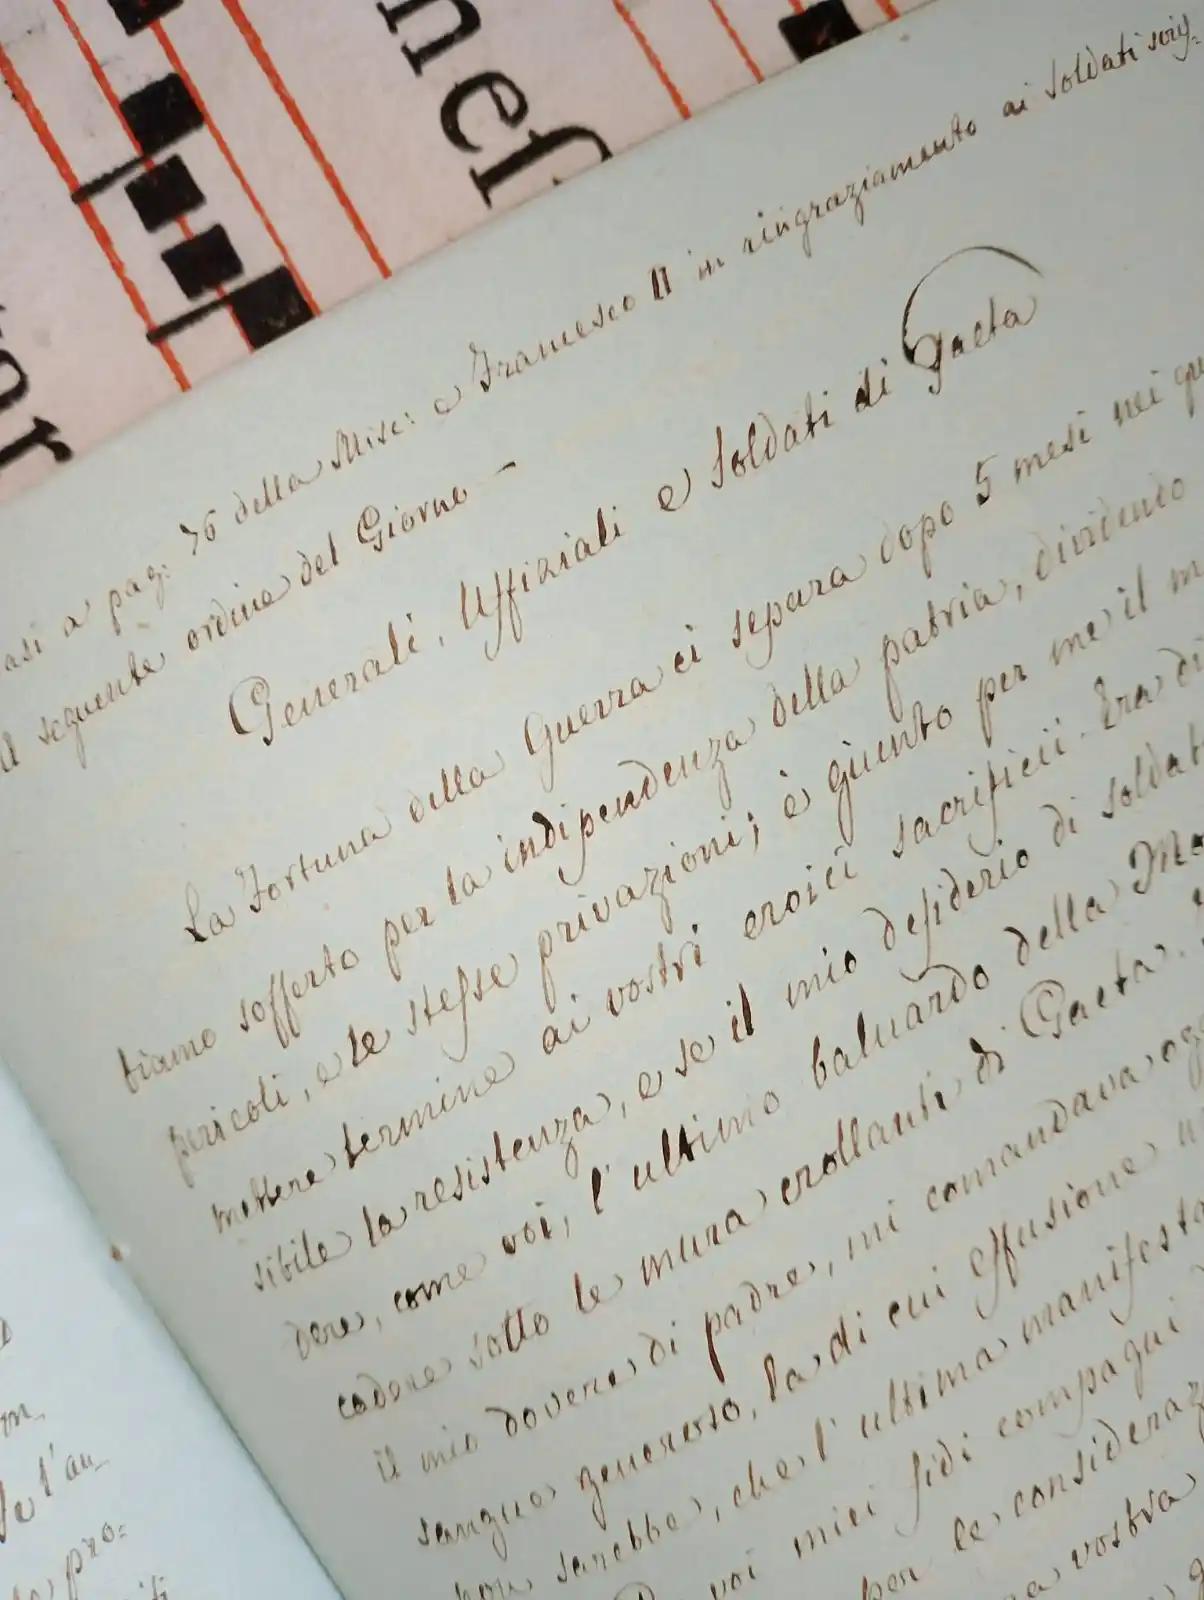 nef
ar
asi a pag: 76 della Misc: e Francesco II in ringraziamento ai soldati
seguente ordine del Giorno —
Generali, Uffiziali e Soldati di Gaeta
La Fortuna della Guerra ci separa dopo 5 mesi nei qu
biamo sofferto per la indipendenza della patria, dividendo
pericoli, e le stesse privazioni; è giunto per me il m
mettere termine ai vostri eroici sacrificii. Era di
sibile la resistenza, e se il mio desiderio di soldat
dere, come voi, l'ultimo baluardo della Mo
cadere sotto le mura crollanti di Gaeta.
il mio dovere di padre, mi comandava og
sangue generoso, la di cui effusione
non sarebbe, che l'ultima manifesta
voi miei fidi compagni
per le consideraz
vostra
m
le l'au
pro: